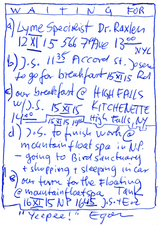 WAITING FOR
a) Lyme Specialist Dr. Raxlen
12 XI 15 566 7th Ave 13:00 NYC
b) J.S. 1135 Accord St.
to go for breakfast 15 XI 15
c) our breakfast @ HIGH FALLS
w/J.S. 15 XI 15 KITCHENETTE
High Falls, NY
d) J.S. to finish work @
mountainfloat spa in N.P.
- going to Bird Sanctuary
+ shopping + sleeping in car
e) our turn for the Floating
@ mountainfloat spa Tank
16 XI 15 NP 1645 J.S. + E
"Yeepee!"